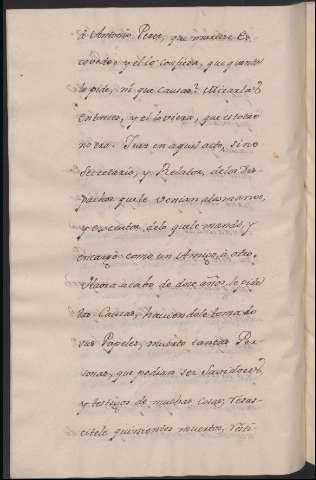 à Antonio Perez, que muriere Es-
covedo, y el lo confiesa, que quanto
lo pide, ni que Causas? Miraralo
entonces, y el lo viera, que estotro
no era Juez en aquel acto, sino
Secretario, y Relator, de los Des-
pachos que le venian a las manos,
y executor, de lo que le mandó, y
encargó como un Amigo, à otro.
Ahora a cabo de doze años, le pide
las Causas, haviendole tomado
sus Papeles, muerto tantas Per-
sonas, que podian ser Savidores,
y testigos de muchas cosas, resus-
citele quinientos muertos, resti-